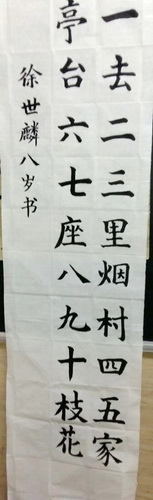 一去二三里烟村四五家
亭台六七座八九十枝花
徐世麟八岁书